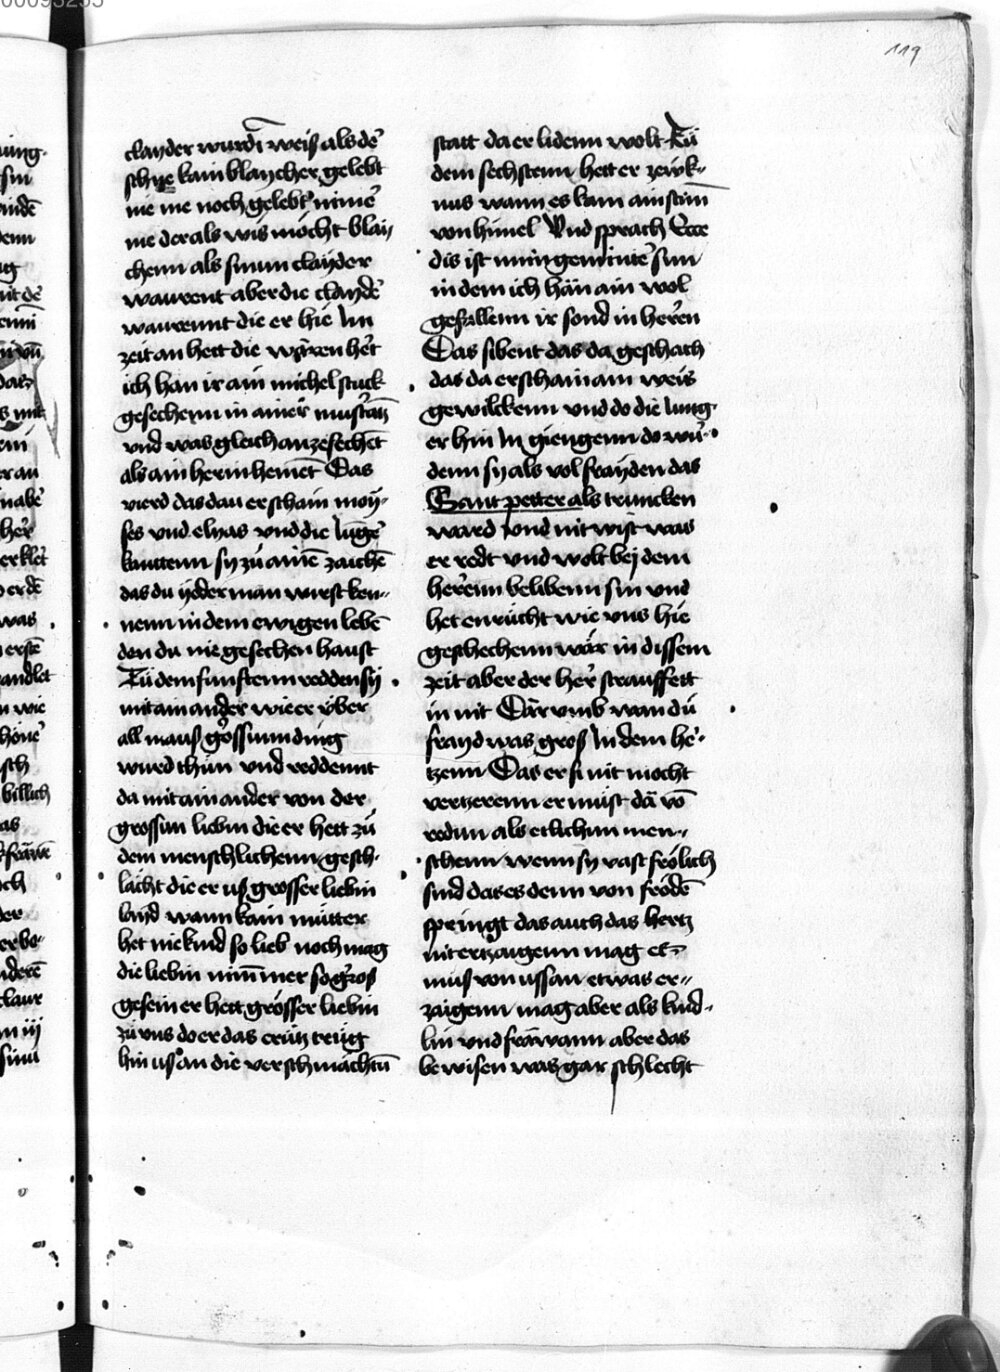 119
clayder wurdī weis als de᷑
schne kain blaycher gelebt
nie me noch gelebt nime᷑
me der als wis möcht blai⸗
chenn als sinnn clayder
waurent aber die clayde᷑
waurennt die er hie Jm
zeit an hett die waren he᷑t
ich han ir ain michel stuck
gesechenn in ainer
vnd was gleich anzesechēt
als ain hermhemēt Das
vierd das dau erschain moy⸗
ses vnd elyas vnd die Junge᷑
kanttenn sy zu ainē zaichē
das du yederman wirst ken⸗
nenn in dem ewigen lebē
den du nie gesechen haust
Zu dem funftenn reddend sy
mit ain ander wie er über
all maus grossinn ding
wurd thün vnd reddennt
da mit ain ander von der
grossun liebin die er hett zü
dem menschlichenn gesch⸗
lächt die er us grosser liebin
laid wann kain mütter
het nie kind so lieb noch mag
die liebin nim̄mer so gros
gesein er hett grösser liebin
zü vns do er das crütz trüg
hin us an die verschmächtū
statt da er lidenn wolt Zü
dem sechstenn hett er zewk⸗
nus wann es kam ain stim̄
von himel Vnd sprach Ecce
dis ist min geminter sun
in dem ich hān ain wol
gefallenn ir sond in heren
Das sibent das da geschach
das da erschain ain weis
gewilckenn vnd do die Jung⸗
er hin Jn giengenn do wu᷑⸗
denn sy als vol frayden das
Sant petter als truncken
ward vnd nit wist was
er redt vnd wolt bej dem
herenn belibenn sin vnd
het enrücht wie vns hie
geschechenn wär in dissem
zeit aber der her strauffett
in nit Dar vmb wan dü
frayd was gros Jn dem he᷑⸗
tzenn Das er si nit mocht
vertzerenn er müst dā vō
redun als etlichun men⸗
schenn wenn sy vast frölich
sind das es denn von frödē
springt das auch das hertz
nit ertzaigenn mag es
mus von ussan etwas er⸗
zaigenn mag aber als kind⸗
lin vnd fräwann aber das
bewisen was gar schlecht